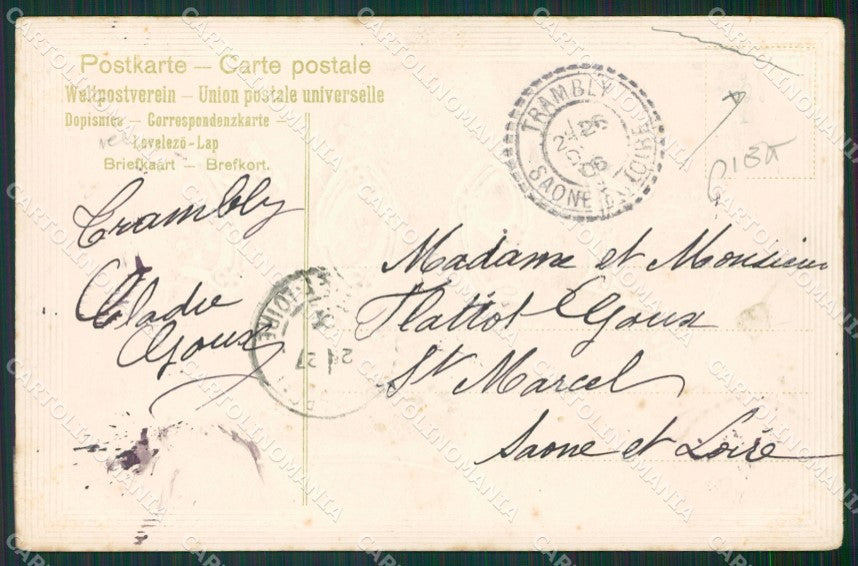 Postkarte — Carte postale
Weltpostverein — Union postale universelle
Dopisnice — Correspondenzkarte —
Levelező-Lap
Briefkaart — Brefkort.
TRAMBLY
26
06
SAONE ET LOIRE
Trambly
Goux
Madame et Monsieur
Flattot Goux
St Marcel
Saone et Loire
24 27
CARTOLINOMANIA